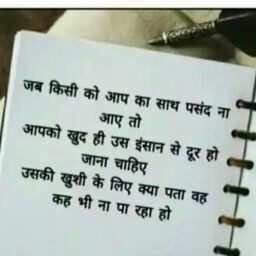 जब किसी को आप का साथ पसंद ना
आए तो
आपको खुद ही उस इंसान से दूर हो
जाना चाहिए
उसकी खुशी के लिए क्या पता वह
कह भी ना पा रहा हो